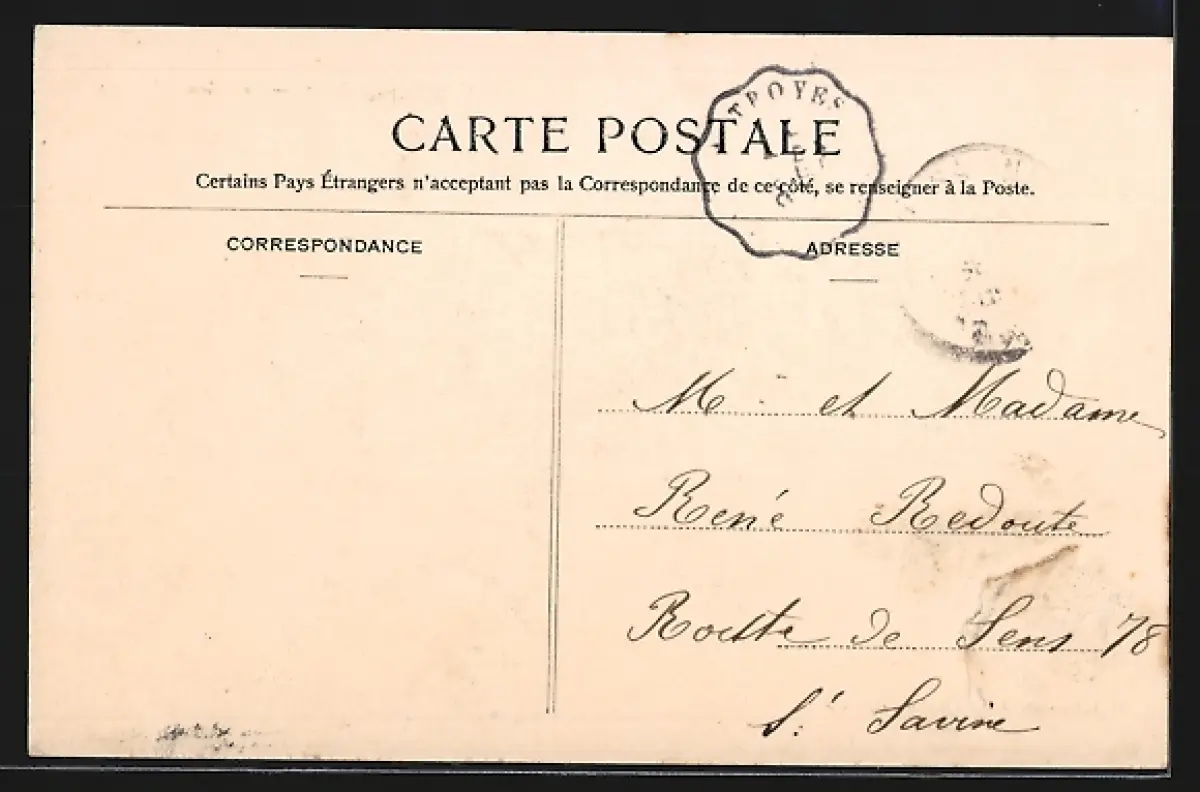 TROYES
CARTE POSTALE
Certains Pays Étrangers n'acceptant pas la Correspondance de ce côté, se renseigner à la Poste.
CORRESPONDANCE
ADRESSE
M et Madame
René Redoute
Route de Sens 78
St Savine